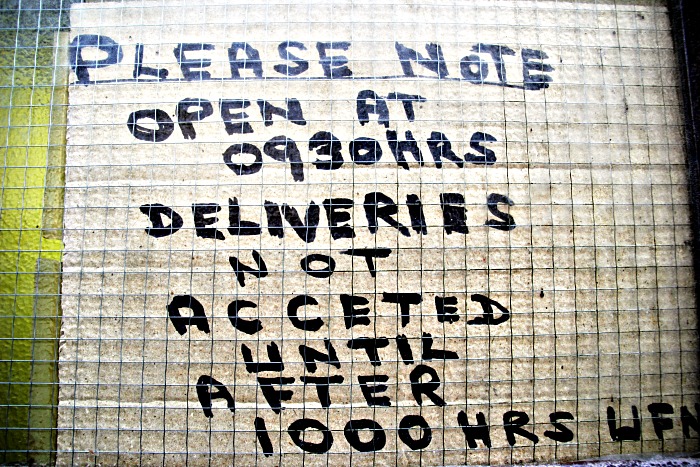 PLEASE NOTE
OPEN AT
0930HRS
DELIVERIES
NOT
ACCETED
UNTIL
AFTER
1000 HRS UFN